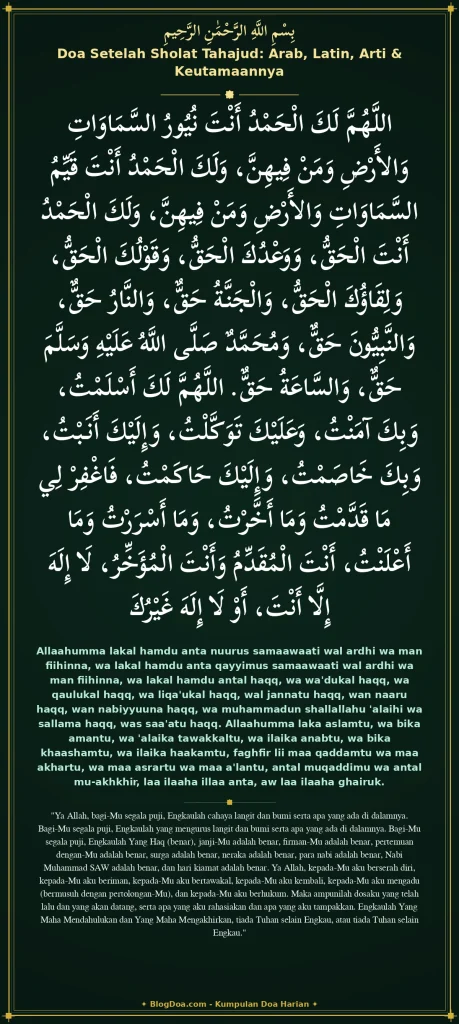 بِسْمِ اللَّهِ الرَّحْمَٰنِ الرَّحِيمِ
Doa Setelah Sholat Tahajud: Arab, Latin, Arti &
Keutamaannya
اللَّهُمَّ لَكَ الْحَمْدُ أَنْتَ نُيُورُ السَّمَاوَاتِ
وَالأَرْضِ وَمَنْ فِيهِنَّ، وَلَكَ الْحَمْدُ أَنْتَ قَيِّمُ
السَّمَاوَاتِ وَالأَرْضِ وَمَنْ فِيهِنَّ، وَلَكَ الْحَمْدُ
أَنْتَ الْحَقُّ، وَوَعْدُكَ الْحَقُّ، وَقَوْلُكَ الْحَقُّ،
وَلِقَاؤُكَ الْحَقُّ، وَالْجَنَّةُ حَقٌّ، وَالنَّارُ حَقٌّ،
وَالنَّبِيُّونَ حَقٌّ، وَمُحَمَّدٌ صَلَّى اللَّهُ عَلَيْهِ وَسَلَّمَ
حَقٌّ، وَالسَّاعَةُ حَقٌّ. اللَّهُمَّ لَكَ أَسْلَمْتُ،
وَبِكَ آمَنْتُ، وَعَلَيْكَ تَوَكَّلْتُ، وَإِلَيْكَ أَنَبْتُ،
وَبِكَ خَاصَمْتُ، وَإِلَيْكَ حَاكَمْتُ، فَاغْفِرْ لِي
مَا قَدَّمْتُ وَمَا أَخَّرْتُ، وَمَا أَسْرَرْتُ وَمَا
أَعْلَنْتُ، أَنْتَ الْمُقَدِّمُ وَأَنْتَ الْمُؤَخِّرُ، لَا إِلَهَ
إِلَّا أَنْتَ، أَوْ لَا إِلَهَ غَيْرُكَ
Allaahumma lakal hamdu anta nuurus samaawaati wal ardhi wa man
fiihinna, wa lakal hamdu anta qayyimus samaawaati wal ardhi wa
man fiihinna, wa lakal hamdu antal haqq, wa wa'dukal haqq, wa
qaulukal haqq, wa liqa'ukal haqq, wal jannatu haqq, wan naaru
haqq, wan nabiyyuuna haqq, wa muhammadun shallallahu 'alaihi wa
sallama haqq, was saa'atu haqq. Allaahumma laka aslamtu, wa bika
amantu, wa 'alaika tawakkaltu, wa ilaika anabtu, wa bika
khaashamtu, wa ilaika haakamtu, faghfir lii maa qaddamtu wa maa
akhartu, wa maa asrartu wa maa a'lantu, antal muqaddimu wa antal
mu-akhkhir, laa ilaaha illaa anta, aw laa ilaaha ghairuk.
"Ya Allah, bagi-Mu segala puji, Engkaulah cahaya langit dan bumi serta apa yang ada di dalamnya.
Bagi-Mu segala puji, Engkaulah yang mengurus langit dan bumi serta apa yang ada di dalamnya. Bagi-Mu
segala puji, Engkaulah Yang Haq (benar), janji-Mu adalah benar, firman-Mu adalah benar, pertemuan
dengan-Mu adalah benar, surga adalah benar, neraka adalah benar, para nabi adalah benar, Nabi
Muhammad SAW adalah benar, dan hari kiamat adalah benar. Ya Allah, kepada-Mu aku berserah diri,
kepada-Mu aku beriman, kepada-Mu aku bertawakal, kepada-Mu aku kembali, kepada-Mu aku mengadu
(bermusuh dengan pertolongan-Mu), dan kepada-Mu aku berhukum. Maka ampunilah dosaku yang telah
lalu dan yang akan datang, serta apa yang aku rahasiakan dan apa yang aku tampakkan. Engkaulah Yang
Maha Mendahulukan dan Yang Maha Mengakhirkan, tiada Tuhan selain Engkau, atau tiada Tuhan selain
Engkau."
✦ BlogDoa.com - Kumpulan Doa Harian ✦